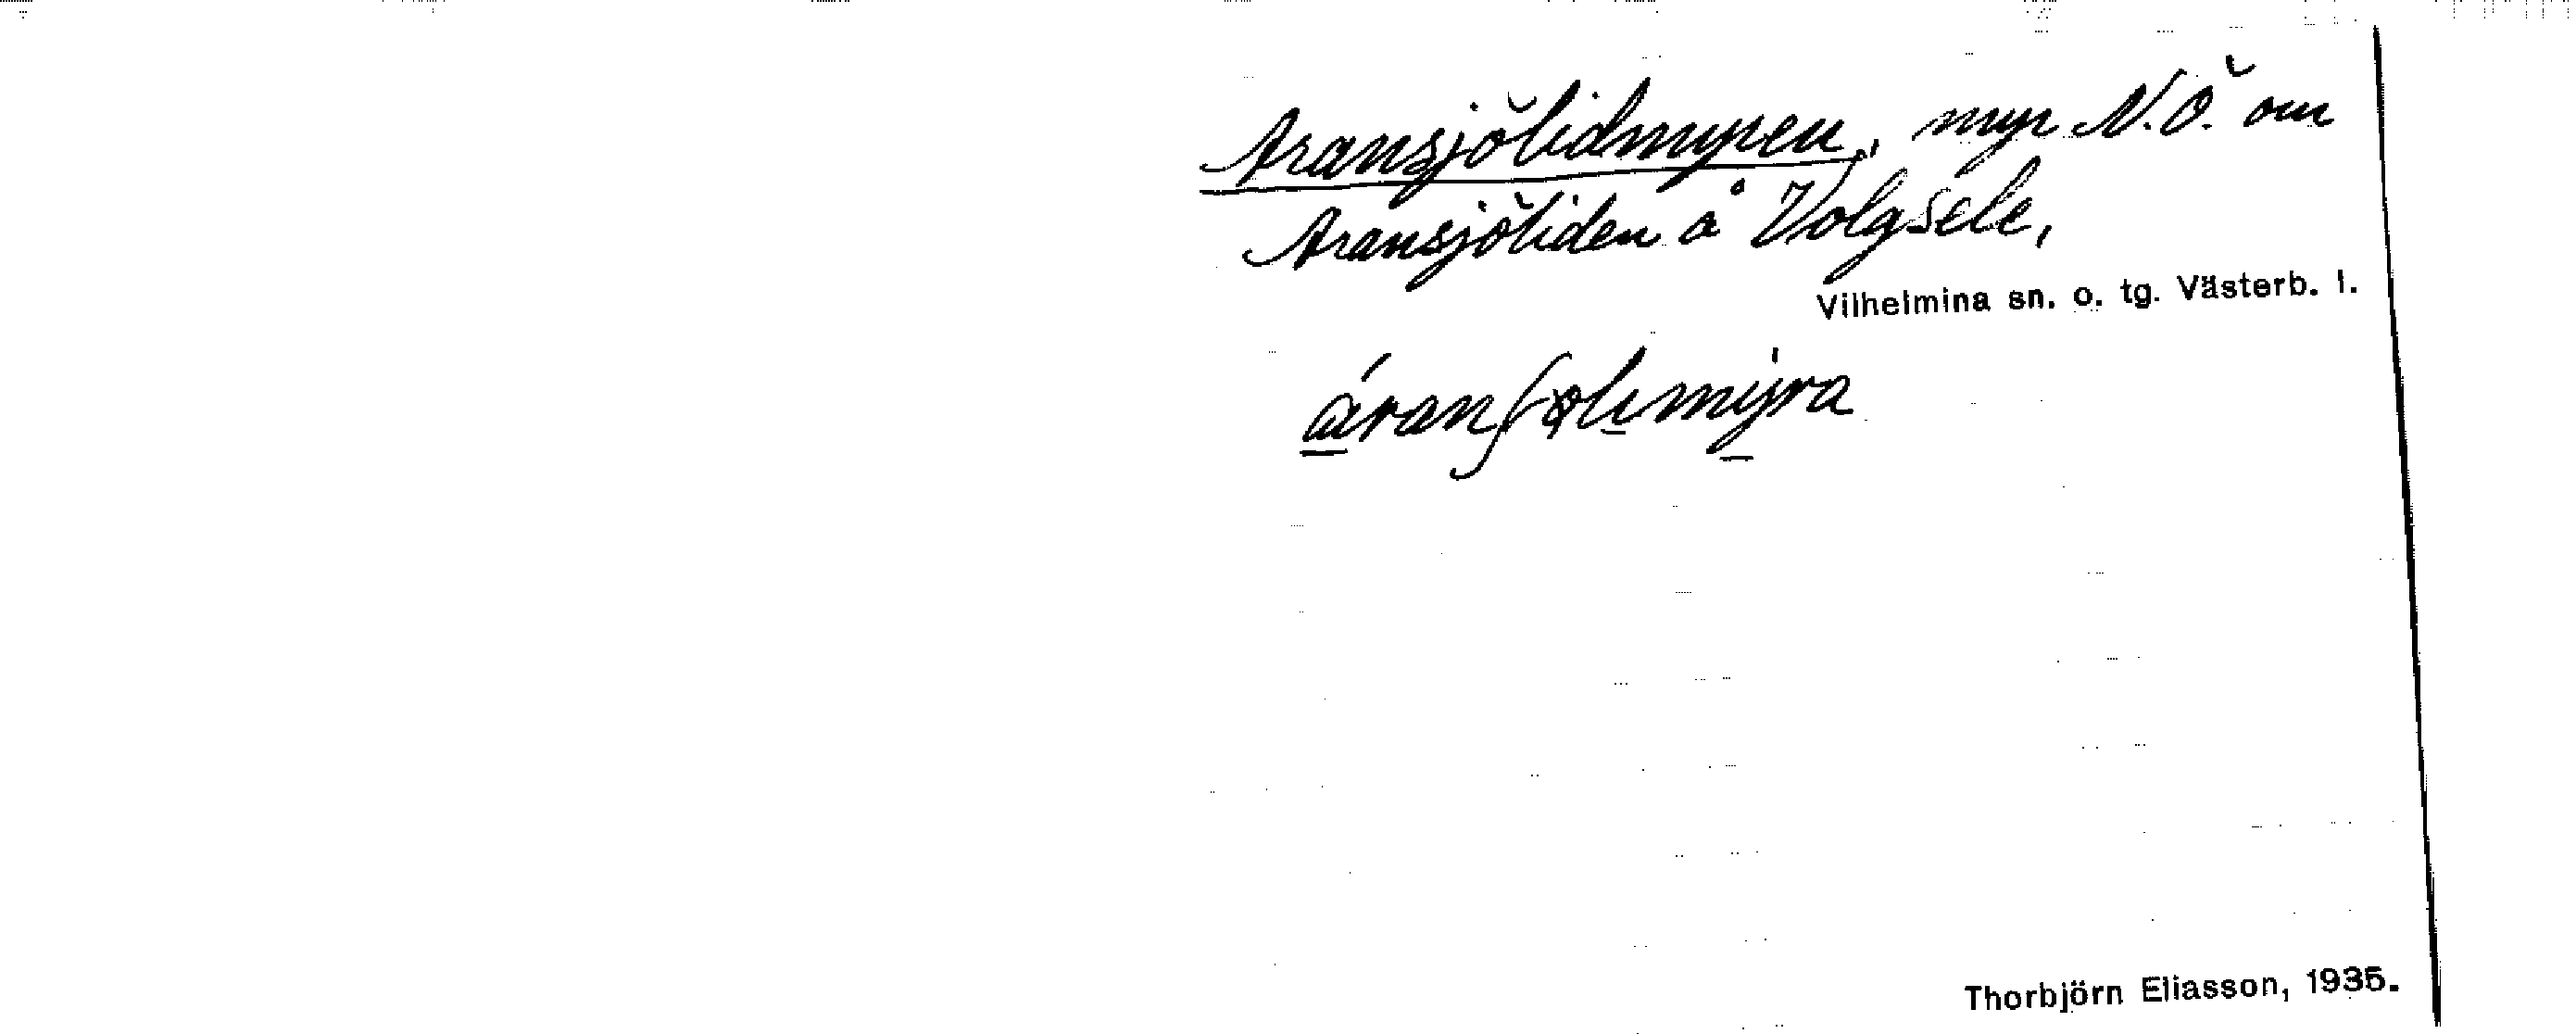 Aransjölidmyren, myr N.Ö. om
Aransjöliden å Volgsele,
Vilhelmina sn. o. tg. Västerb. l.
Thorbjörn Eliasson, 1935.